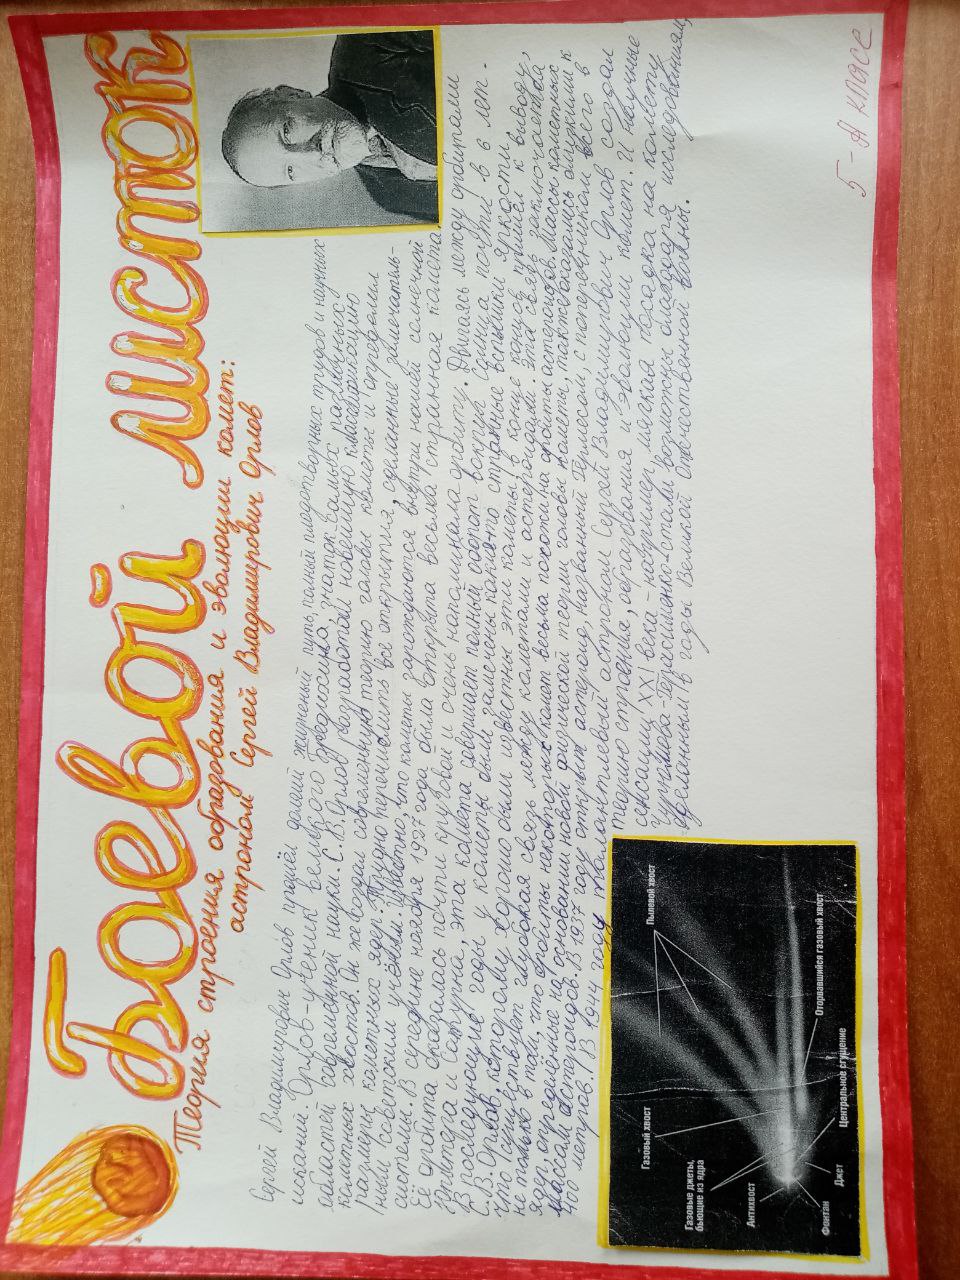 Боевой листок
Теория строения образования и эволюции комет:
астроном Сергей Владимирович Орлов
Сергей Владимирович Орлов прошёл долгий жизненый путь, полный плодотворных трудов и научных
исканий. Орлов-ученик великого Бредихина, знаток самых различных
областей современной науки. С. В. Орлов разработал новейшую классификацию
кометных хвостов. Он же создал современную теорию головы кометы и определил
размеры кометных ядер. Трудно перечислить все открытия, сделанные замечатель-
ным советским учёным. Известно, что кометы зарождаются внутри нашей солнечной
системы. В середине ноября 1927 года была открыта весьма странная комета.
Её орбита оказалась почти круговой и очень напоминала орбиту. Двигаясь между орбитами
Юпитера и Сатурна, эта комета совершает полный оборот вокруг Солнца почти в 16 лет.
В последующие годы у кометы были замечены какие-то странные вспышки яркости.
С. В. Орлов, которому хорошо были известны эти кометы, в конце концов пришёл к выводу,
что существует глубокая связь между кометами и астероидами. Эта связь заключается
не только в том, что орбиты некоторых комет весьма похожи на орбиты астероидов. Массы кометных
ядер, определённые на основании новой физической теории головы кометы, также оказались близкими к
массам астероидов. В 1937 году открыт астероид, названный Гермесом, с поперечником всего в
400 метров. В 1944 году талантливый астроном Сергей Владимирович Орлов создал
теорию строения, образования и эволюции комет. И научные
сенсации XXI века - например мягкая посадка на комету
Чурюмова-Герасименко-стали возможны благодаря исследованиям,
сделанным в годы Великой Отечественной войны.
Газовый хвост
Пылевой хвост
Газовые джеты,
бьющие из ядра
Антихвост
Фонтан
Джет
Центральное сгущение
Оторвавшийся газовый хвост
5-А класс